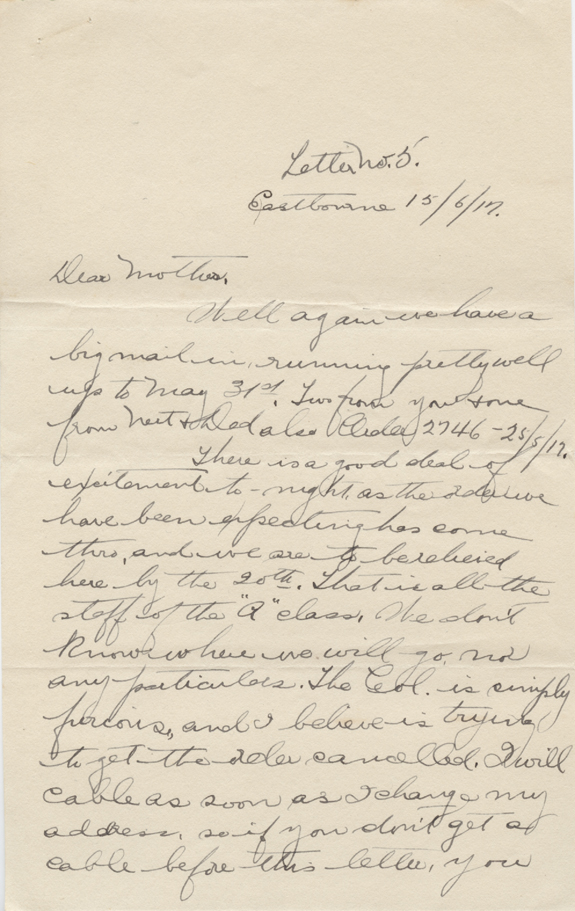 Letter no. 5.
Eastbourne 15/6/17.
Dear Mother,
Well again we have a
big mail in, running pretty well
up to May 31st. Two from you & one
from Nert & Dad also Order 2746 - 25/5/17.
There is a good deal of
excitement to-night, as the order we
have been expecting has come
thro, and we are to be relieved
here by the 20th. That is all the
staff of the "A" class. We don't
know where we will go, nor
any particulars. The Col. is simply
furious, and I believe is trying
to get the order cancelled. I will
cable as soon as I change my
address, so if you don't get a
cable before this letter, you